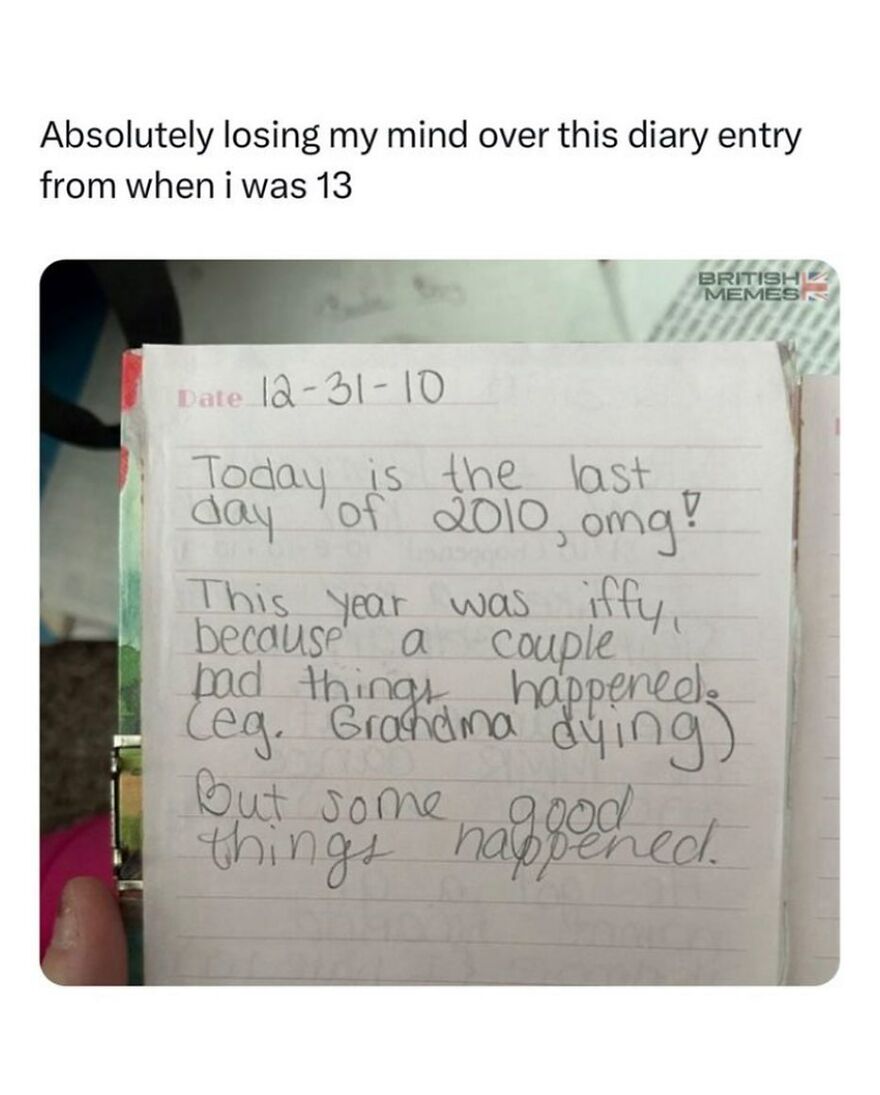 Absolutely losing my mind over this diary entry
from when i was 13
BRITISH
MEMES
Date 12-31-10
Today is the last
day of 2010, omg!
This year was iffy,
because a couple
bad things happened.
(eg. Grandma dying)
But some good
things happened.